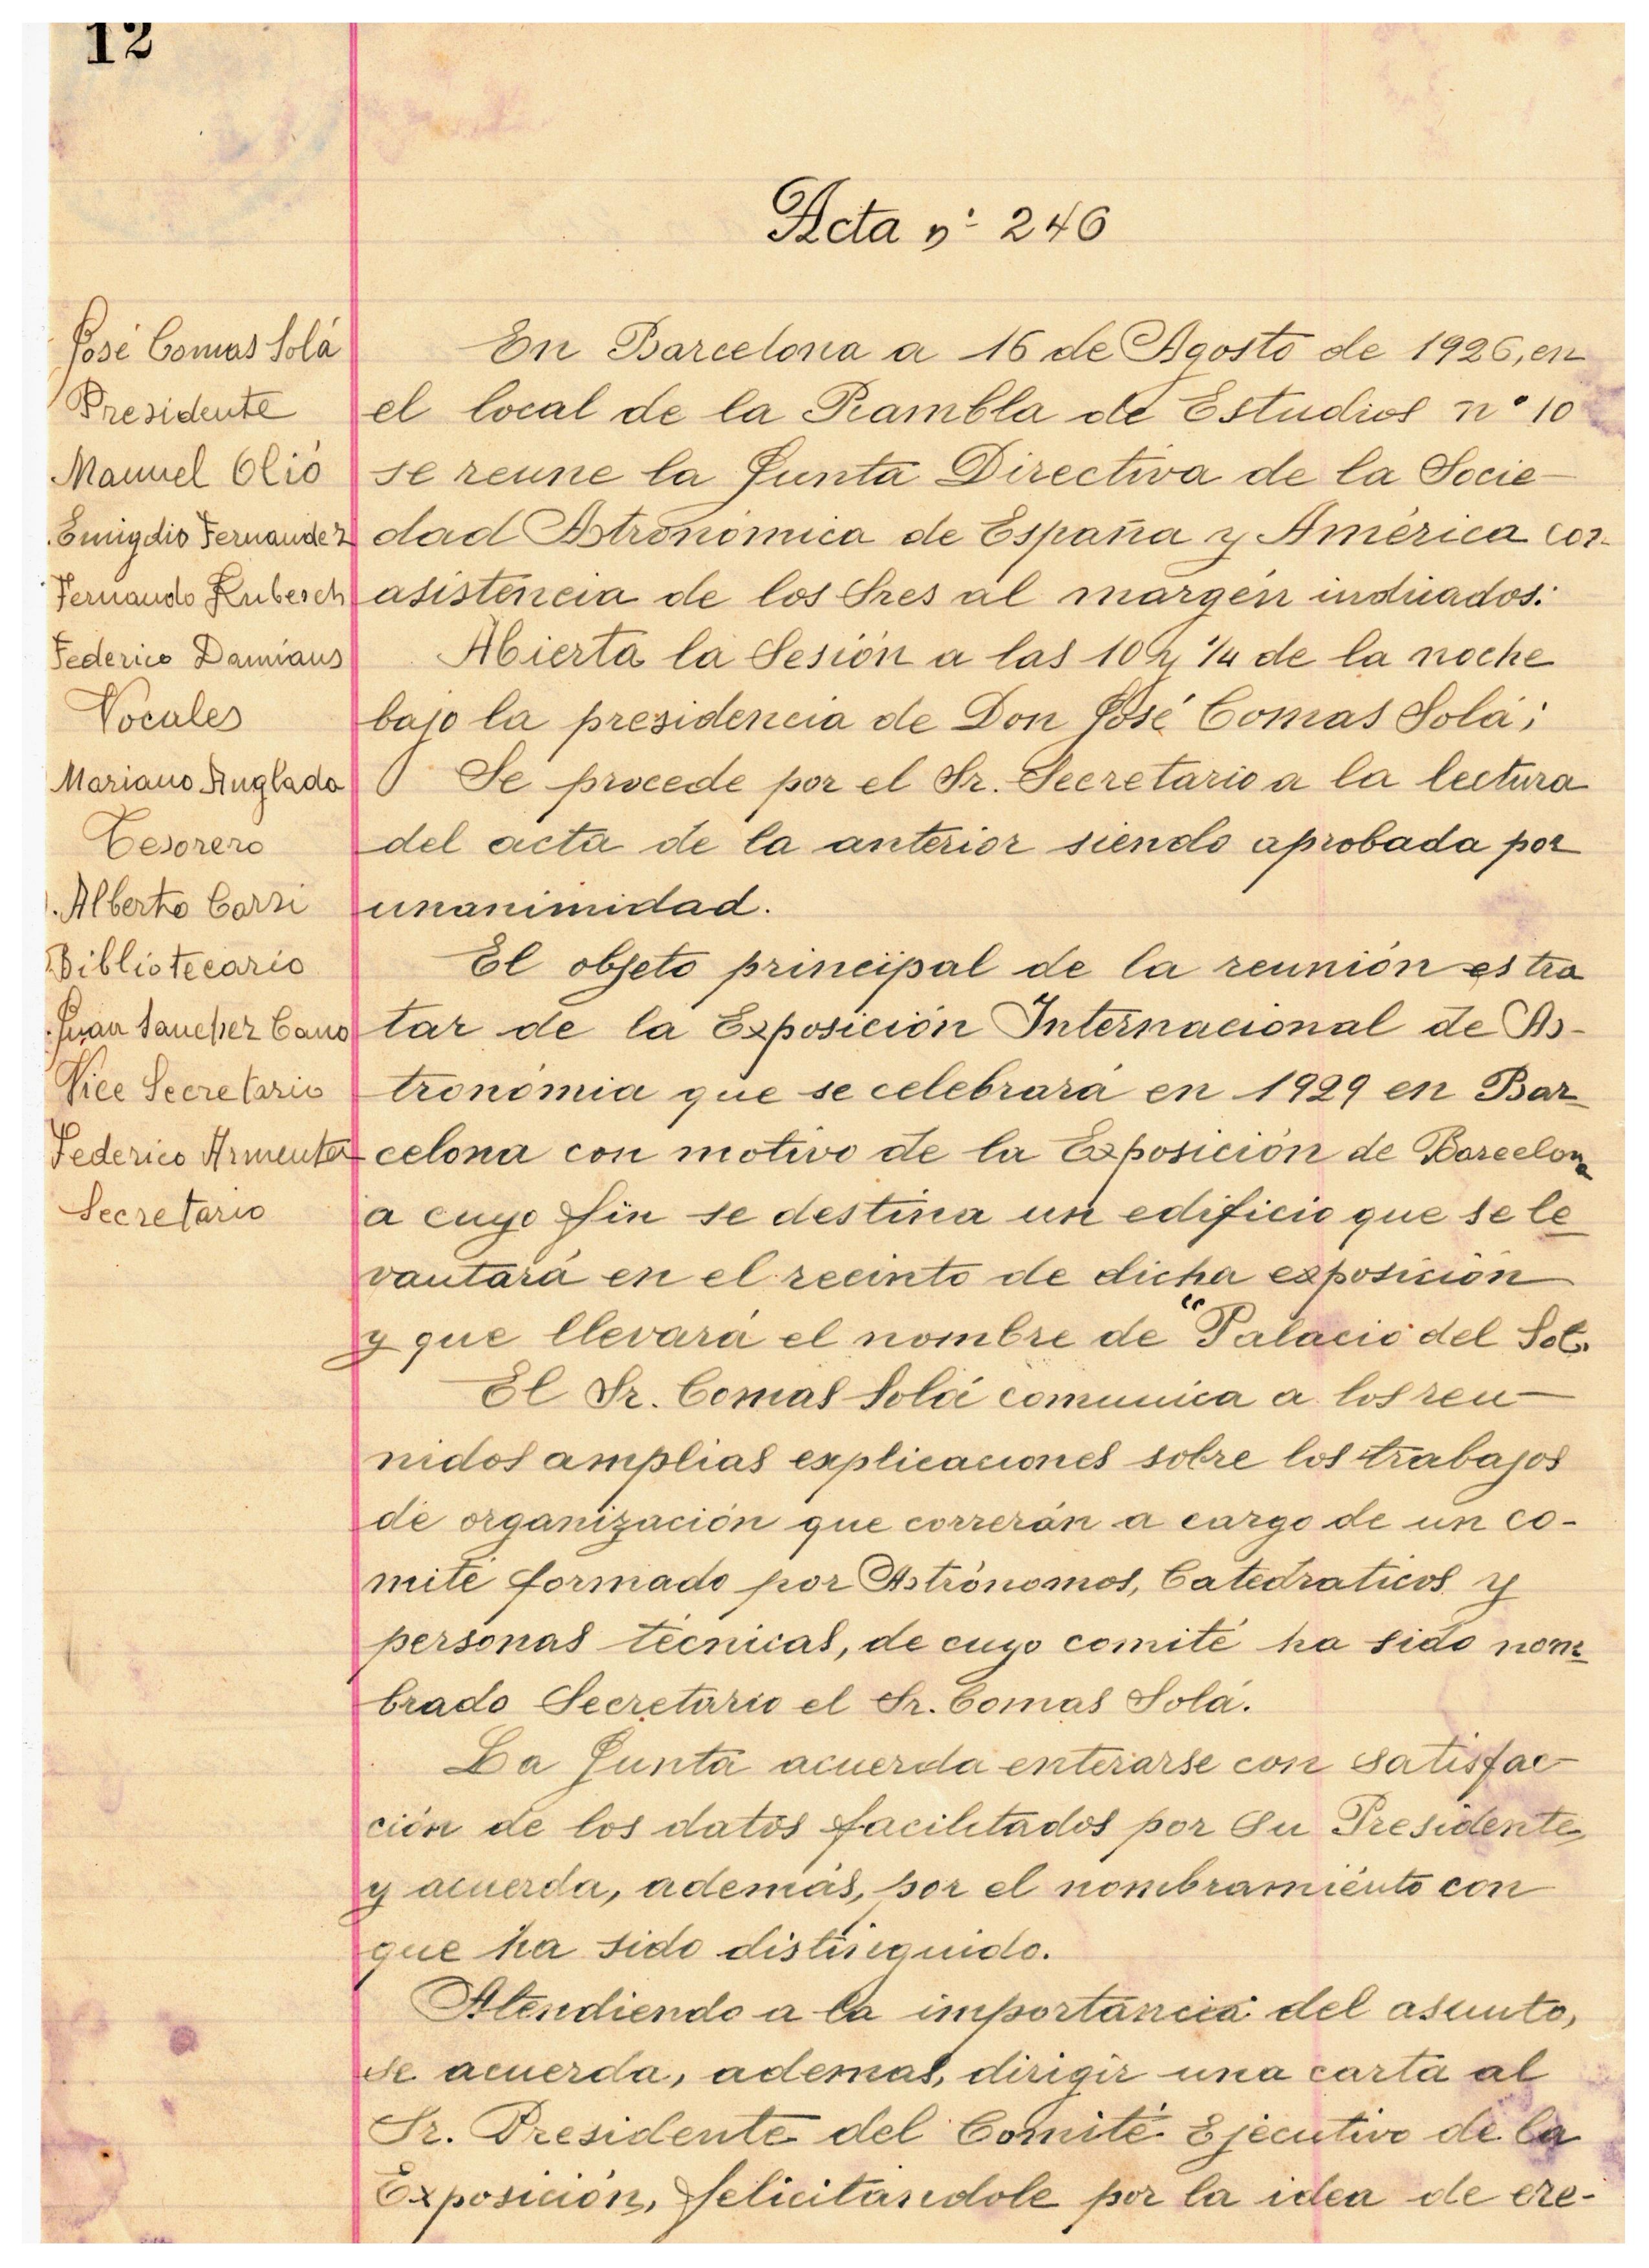 12
Acta nº 246
José Comas Solá
Presidente
Manuel Olió
Emigdio Fernandez
Fernando Kubesch
Federico Damians
Vocales
Mariano Anglada
Tesorero
Alberto Carsi
Bibliotecario
Juan Sanchez Cano
Vice Secretario
Federico Armenter
Secretario
En Barcelona a 16 de Agosto de 1926, en
el local de la Rambla de Estudios nº 10
se reune la Junta Directiva de la Socie-
dad Astronómica de España y América con
asistencia de los Sres al margen indicados:
Abierta la Sesión a las 10 y 1/4 de la noche
bajo la presidencia de Don José Comas Solá;
Se procede por el Sr. Secretario a la lectura
del acta de la anterior siendo aprobada por
unanimidad.
El objeto principal de la reunión es tra
tar de la Exposición Internacional de As-
tronomia que se celebrará en 1929 en Bar-
celona con motivo de la Exposición de Barcelona
a cuyo fin se destina un edificio que se le
vantará en el recinto de dicha exposición
y que llevará el nombre de "Palacio del Sol.
El Sr. Comas Solá comunica a los reu-
nidos amplias explicaciones sobre los trabajos
de organización que correrán a cargo de un co-
mité formado por Astrónomos, Catedraticos y
personas técnicas, de cuyo comité ha sido nom-
brado Secretario el Sr. Comas Solá.
La Junta acuerda enterarse con satisfac-
ción de los datos facilitados por su Presidente
y acuerda, además, por el nombramiento con
que ha sido distinguido.
Atendiendo a la importancia del asunto,
se acuerda, ademas, dirigir una carta al
Sr. Presidente del Comité Ejecutivo de la
Exposición, felicitándole por la idea de cre-